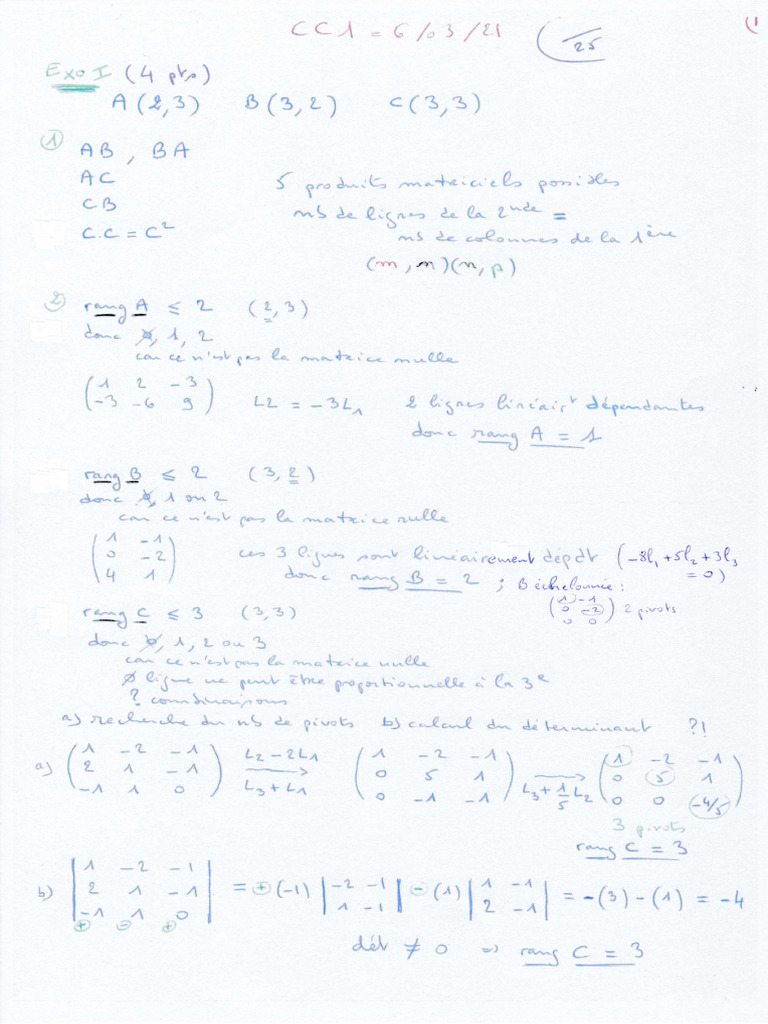 CC1 = 6/03/21 /25 (1
Exo I (4 pts)
A(2,3) B(3,2) C(3,3)
① AB, BA
AC
CB
C.C = C²
5 produits matriciels possibles
nb de lignes de la 2nde =
nb de colonnes de la 1ère
(m, n)(n, p)
② rang A ≤ 2 (2, 3)
donc 0, 1, 2
car ce n'est pas la matrice nulle
(1 2 -3
-3 -6 9) L2 = -3L1 2 lignes linéairt dépendantes
donc rang A = 1
rang B ≤ 2 (3, 2)
donc 0, 1 ou 2
car ce n'est pas la matrice nulle
(1 -1
0 -2
4 1) ces 3 lignes sont linéairement dépdt (-8l1 + 5l2 + 3l3 = 0)
donc rang B = 2 ; B échelonnée :
(1 -1
0 -2
0 0) 2 pivots
rang C ≤ 3 (3, 3)
donc 0, 1, 2 ou 3
car ce n'est pas la matrice nulle
∅ ligne ne peut être proportionnelle à la 3e
? combinaisons
a) recherche du nb de pivots b) calcul du déterminant ?!
a) (1 -2 -1
2 1 -1
-1 1 0) L2 - 2L1 → L3 + L1 (1 -2 -1
0 5 1
0 -1 -1) → L3 + 1/5 L2 (1 -2 -1
0 5 1
0 0 -4/5)
3 pivots
rang C = 3
b) |1 -2 -1
2 1 -1
-1 1 0| = + (-1) |-2 -1
1 -1| - (1) |1 -1
2 -1| = -(3) - (1) = -4
+ - +
dét ≠ 0 => rang C = 3